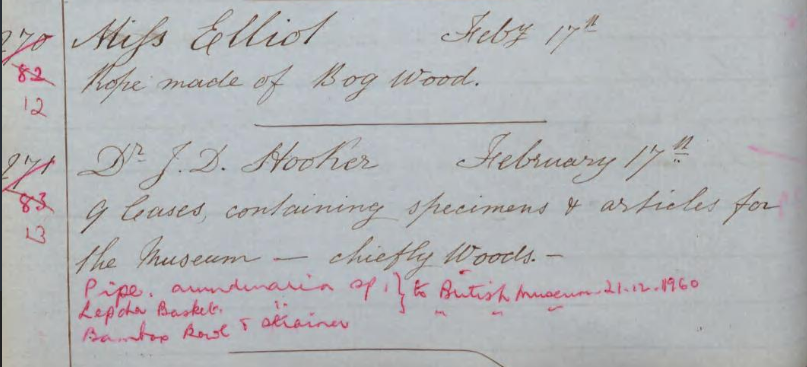 270 Miss Elliot Feby 17th
82 Rope made of Bog Wood.
12
271 Dr J. D. Hooker February 17th
83 9 Cases, containing specimens & articles for
13 the Museum — chiefly Woods. —
Pipe. arundinaria sp. } to British Museum 21.12.1960
Lepcha Basket. " " "
Bamboo Bowl & strainer